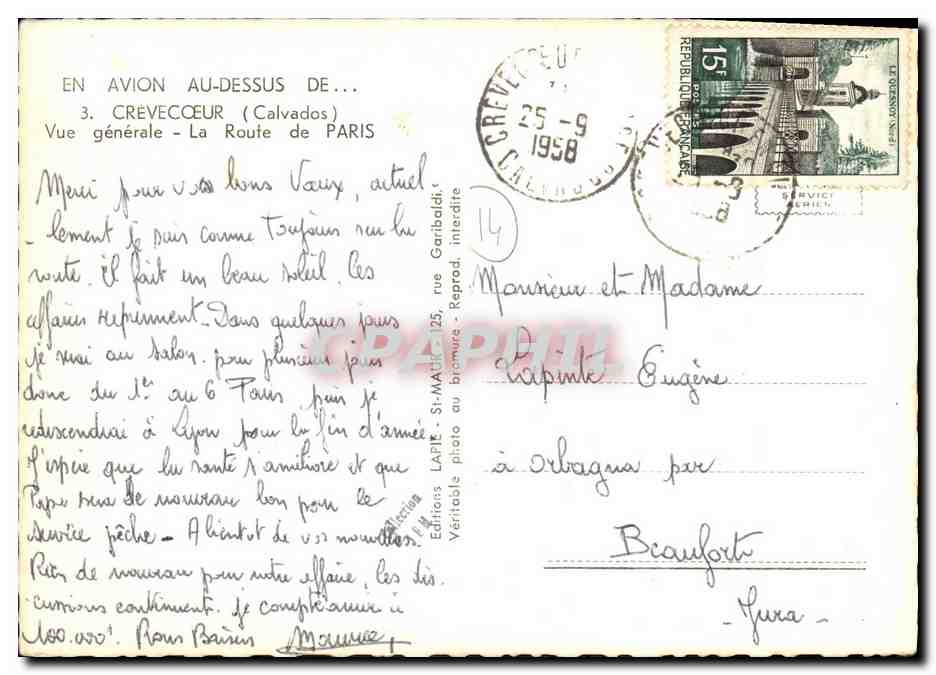 EN AVION AU-DESSUS DE...
3. CRÈVECŒUR (Calvados)
Vue générale - La Route de PARIS
Merci pour vos bons Vœux, actuel
-lement je suis comme Toujours sur la
route. Il fait un beau soleil, les
affaires reprennent. Dans quelques jours
je serai au salon. pour plusieurs jours
donc du 1er au 6 Paris, puis je
redescendrai à Lyon pour la fin d'année.
J'espère que la santé s'améliore et que
Papa sera de nouveau bon pour le
service pêche - A bientôt de vos nouvelles.
Rien de nouveau pour notre affaire, les dis
cussions continuent. je compte arriver à
100.000f. Bons Baisers Maurice
Editions LAPIE - St-MAUR - 125, rue Garibaldi.
Véritable photo au bromure - Reprod. interdite
Collection
14
CREVECŒUR
25-9
1958
CALVADOS
15F
REPUBLIQUE FRANÇAISE
POSTES
LE QUESNOY (Nord)
SERVICE
AERIEN
Monsieur et Madame
Lapinte Eugène
à Orbagna par
Beaufort
- Jura -
CPAPHIL